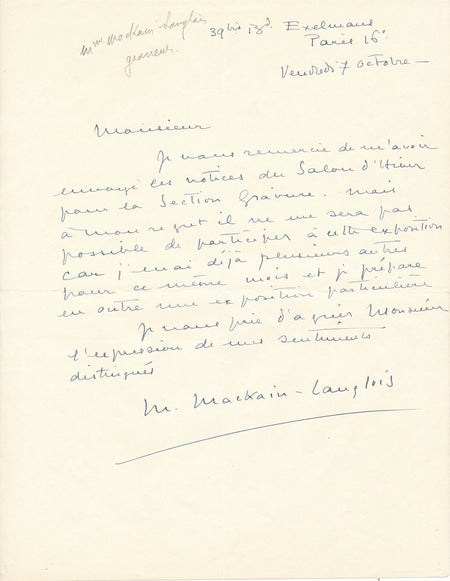 Mme Mackain-Langlois
graveur.
39 bis Bd. Exelmans
Paris 16e
Vendredi 7 octobre —
Monsieur
Je vous remercie de m'avoir
envoyé les notices du Salon d'Hiver
pour la Section Gravure. Mais
à mon regret il ne me sera pas
possible de participer à cette exposition
car j'en ai déjà plusieurs autres
pour ce même mois et je prépare
en outre une exposition particulière
Je vous prie d'agréer Monsieur
l'expression de mes sentiments
distingués
M. Mackain-Langlois